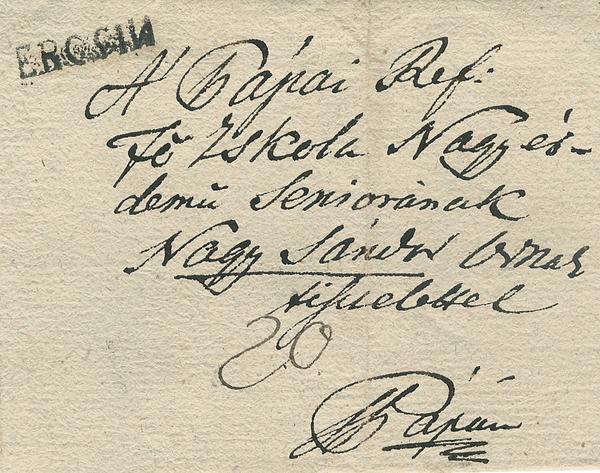 EBOSIN
A' Pápai Ref:
Fő Iskola Nagy ér-
demű Seniorának
Nagy Sándor Urnak
tisztelettel
20
Pápán